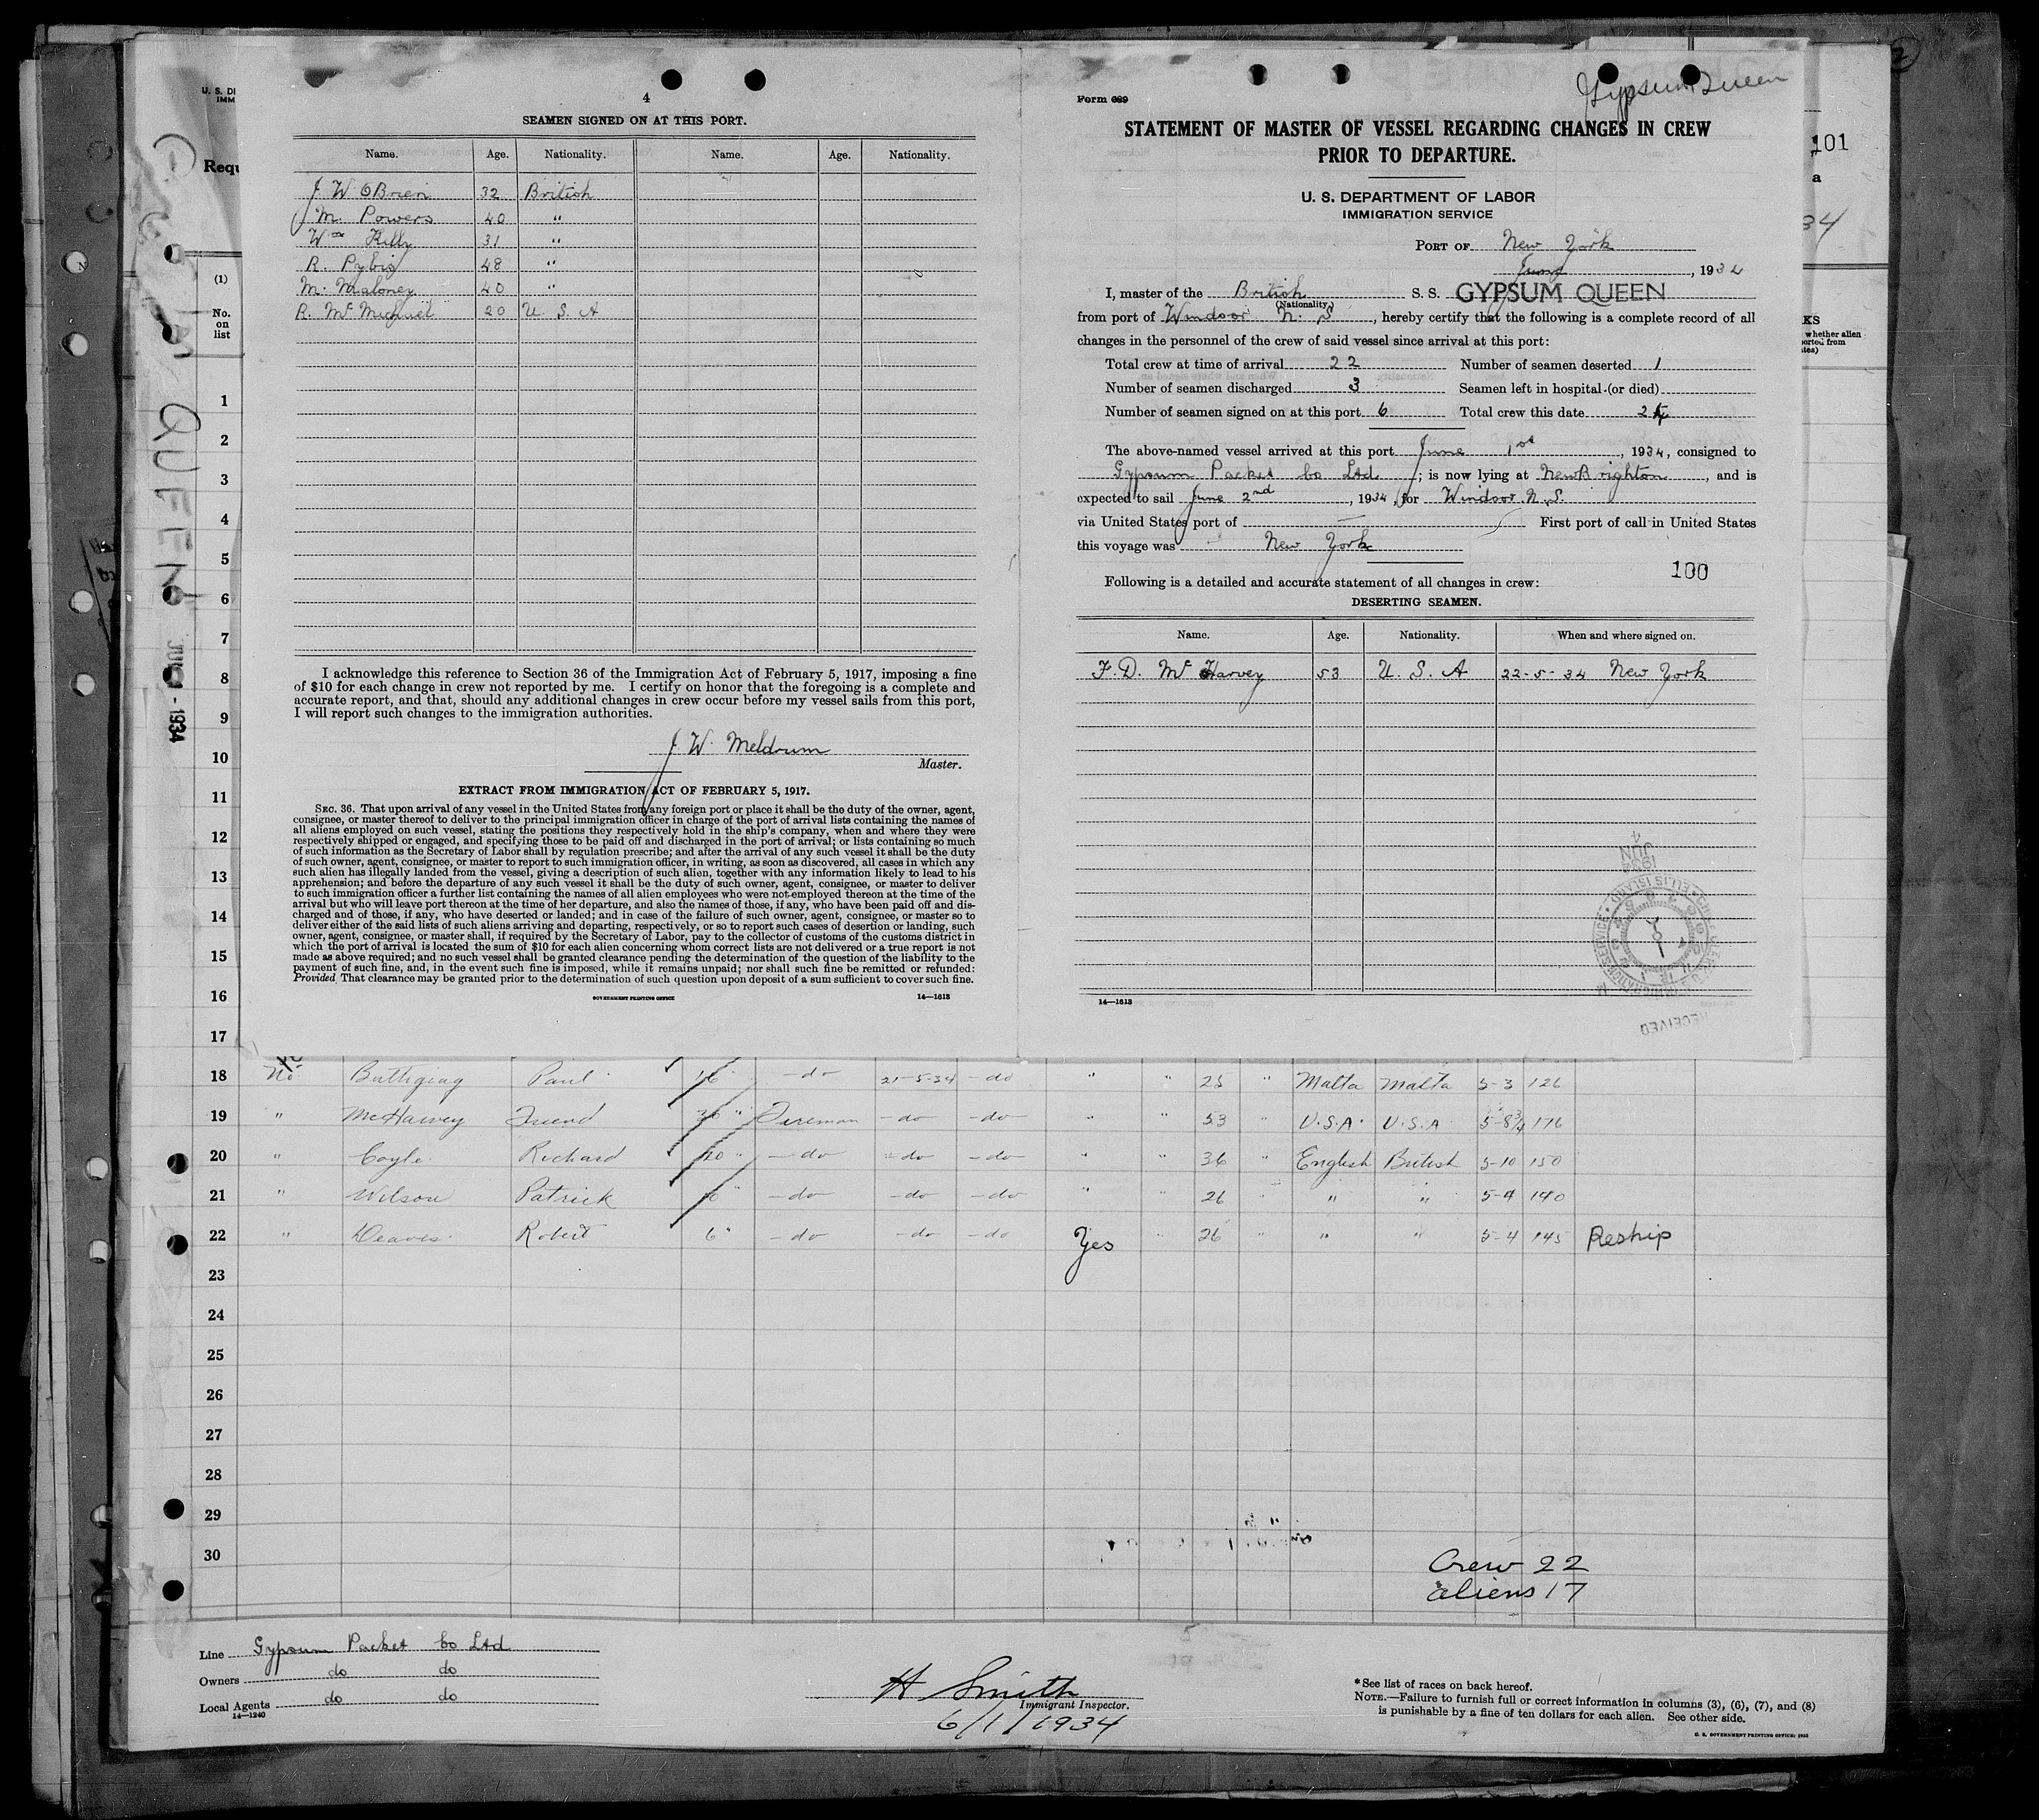 4
SEAMEN SIGNED ON AT THIS PORT.
Name. Age. Nationality. Name. Age. Nationality.
J W OBrien 32 British
M. Powers 40 "
Wm Kelly 31 "
R. Pybis 48 "
M. Maloney 40 "
R. Mc Michael 20 U. S. A
I acknowledge this reference to Section 36 of the Immigration Act of February 5, 1917, imposing a fine
of $10 for each change in crew not reported by me. I certify on honor that the foregoing is a complete and
accurate report, and that, should any additional changes in crew occur before my vessel sails from this port,
I will report such changes to the immigration authorities.
J W. Meldrum
Master.
EXTRACT FROM IMMIGRATION ACT OF FEBRUARY 5, 1917.
SEC. 36. That upon arrival of any vessel in the United States from any foreign port or place it shall be the duty of the owner, agent,
consignee, or master thereof to deliver to the principal immigration officer in charge of the port of arrival lists containing the names of
all aliens employed on such vessel, stating the positions they respectively hold in the ship's company, when and where they were
respectively shipped or engaged, and specifying those to be paid off and discharged in the port of arrival; or lists containing so much
of such information as the Secretary of Labor shall by regulation prescribe; and after the arrival of any such vessel it shall be the duty
of such owner, agent, consignee, or master to report to such immigration officer, in writing, as soon as discovered, all cases in which any
such alien has illegally landed from the vessel, giving a description of such alien, together with any information likely to lead to his
apprehension; and before the departure of any such vessel it shall be the duty of such owner, agent, consignee, or master to deliver
to such immigration officer a further list containing the names of all alien employees who were not employed thereon at the time of the
arrival but who will leave port thereon at the time of her departure, and also the names of those, if any, who have been paid off and dis-
charged and of those, if any, who have deserted or landed; and in case of the failure of such owner, agent, consignee, or master so to
deliver either of the said lists of such aliens arriving and departing, respectively, or so to report such cases of desertion or landing, such
owner, agent, consignee, or master shall, if required by the Secretary of Labor, pay to the collector of customs of the customs district in
which the port of arrival is located the sum of $10 for each alien concerning whom correct lists are not delivered or a true report is not
made as above required; and no such vessel shall be granted clearance pending the determination of the question of the liability to the
payment of such fine, and, in the event such fine is imposed, while it remains unpaid; nor shall such fine be remitted or refunded:
Provided, That clearance may be granted prior to the determination of such question upon deposit of a sum sufficient to cover such fine.
GOVERNMENT PRINTING OFFICE 14—1613
Gypsum Queen
Form 689
STATEMENT OF MASTER OF VESSEL REGARDING CHANGES IN CREW
PRIOR TO DEPARTURE.
U. S. DEPARTMENT OF LABOR
IMMIGRATION SERVICE
PORT OF New York
June, 1934
I, master of the British S. S. GYPSUM QUEEN
(Nationality.)
from port of Windsor N. S, hereby certify that the following is a complete record of all
changes in the personnel of the crew of said vessel since arrival at this port:
Total crew at time of arrival 22 Number of seamen deserted 1
Number of seamen discharged 3 Seamen left in hospital (or died)
Number of seamen signed on at this port 6 Total crew this date 24
The above-named vessel arrived at this port June 1st, 1934, consigned to
Gypsum Packet Co Ltd; is now lying at New Brighton, and is
expected to sail June 2nd, 1934, for Windsor N. S.
via United States port of — First port of call in United States
this voyage was New York
100
Following is a detailed and accurate statement of all changes in crew:
DESERTING SEAMEN.
Name. Age. Nationality. When and where signed on.
F. D. Mc Harvey 53 U. S. A 22-5-34 New York
1934
JUN
4
RECEIVED
14—1613
U. S. DE
IMM
Requ
(1)
No.
on
list
QUEEN
JUN - 1934
101
a
34
KS
whether alien
ported from
tes)
1
2
3
4
5
6
7
8
9
10
11
12
13
14
15
16
17
18 No. Buttigieg Paul 16 " -do 21-5-34 -do " " 25 " Malta Malta 5-3 126
19 " McHarvey Friend 30 " Fireman -do- -do- " " 53 " U.S.A. U.S.A 5-8¾ 176
20 " Coyle Richard 20 " -do -do- -do- " " 36 " English British 5-10 150
21 " Wilson Patrick 6 " -do- -do- -do- " " 26 " " " 5-4 140
22 " Deaves Robert 6 " -do- -do- -do Yes " 26 " " " 5-4 145 Reship
23
24
25
26
27
28
29
30
Crew 22
aliens 17
Line Gypsum Packet Co Ltd
Owners do do
Local Agents do do
14—1240
H Smith
Immigrant Inspector.
6/1/1934
* See list of races on back hereof.
NOTE.—Failure to furnish full or correct information in columns (3), (6), (7), and (8)
is punishable by a fine of ten dollars for each alien. See other side.
U. S. GOVERNMENT PRINTING OFFICE: 1932